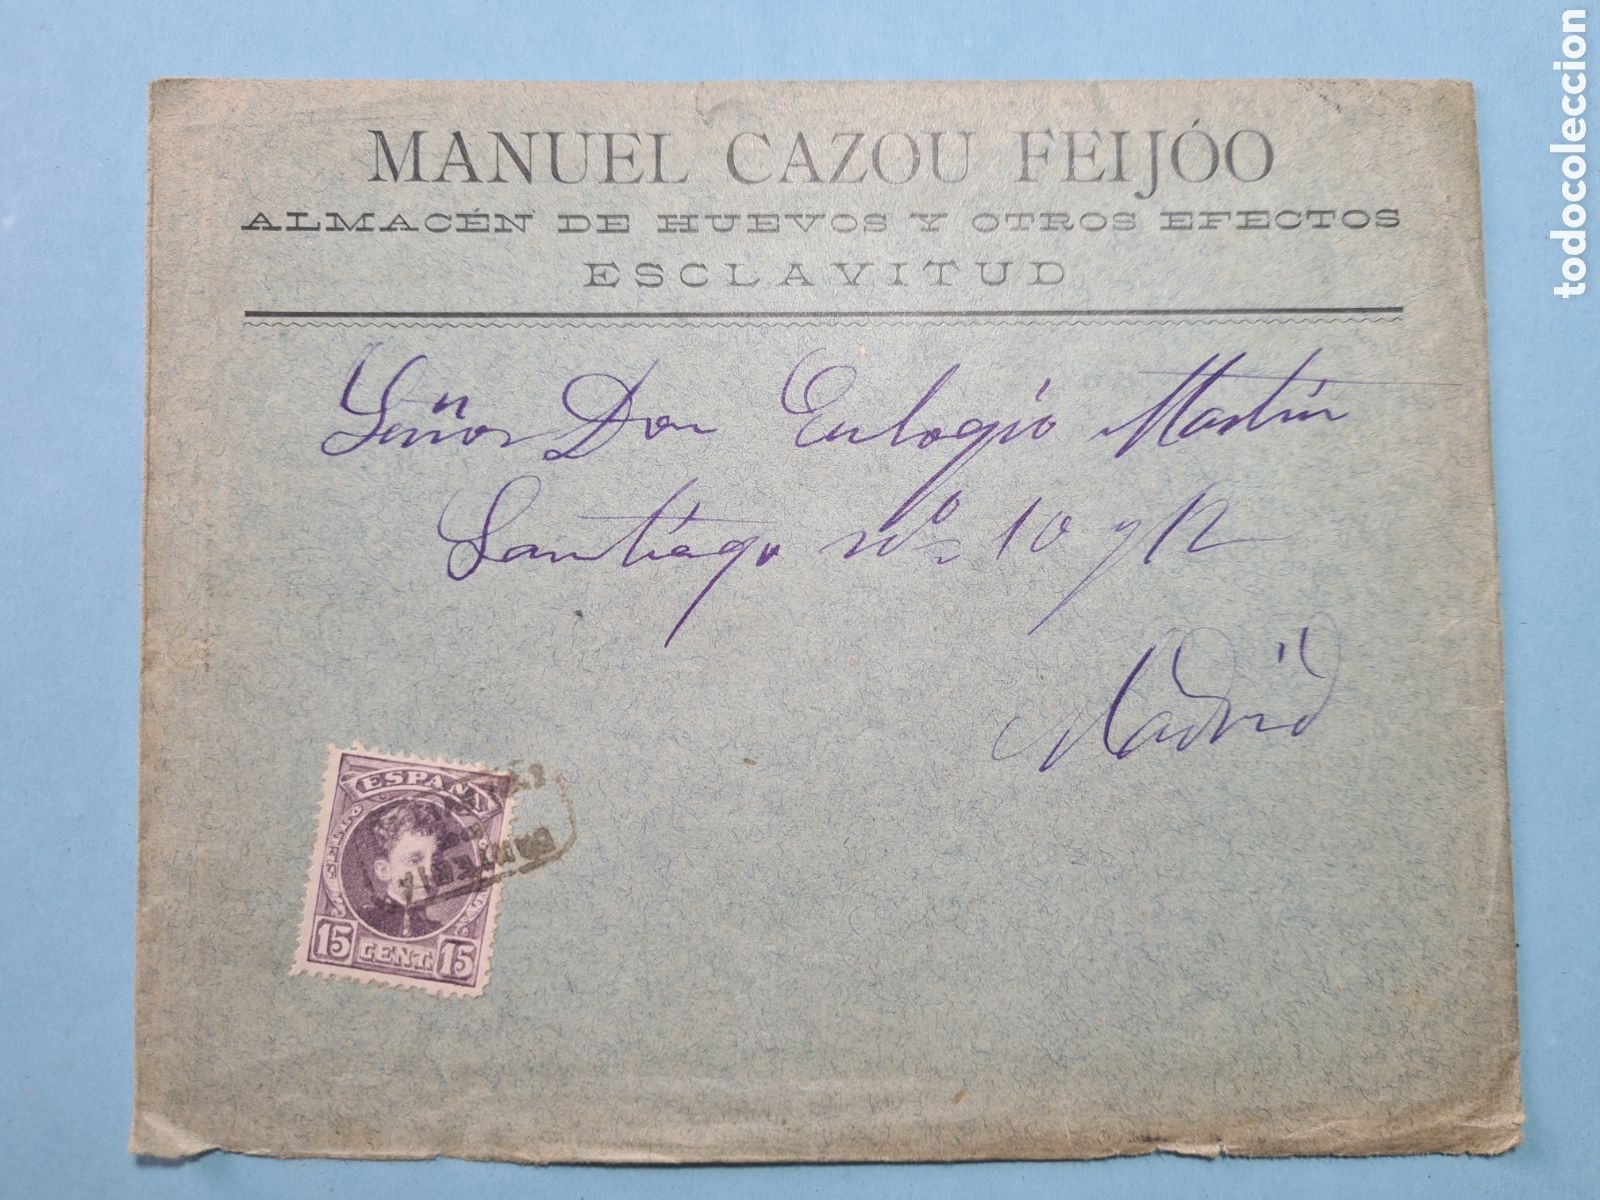 MANUEL CAZOU FEIJÓO
ALMACÉN DE HUEVOS Y OTROS EFECTOS
ESCLAVITUD
Señor Don Eulogio Martín
Santiago nº 10 y 12
Madrid
ESPAÑA
SELLO
15 CENT. 15
todocoleccion